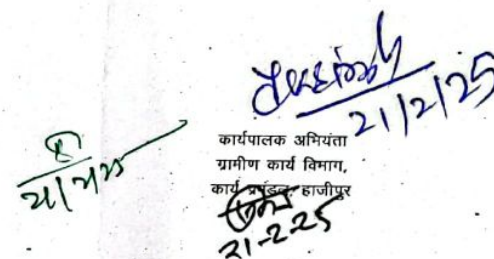 21/2/25
कार्यपालक अभियंता
ग्रामीण कार्य विभाग,
कार्य प्रमंडल, हाजीपुर
21-2-25